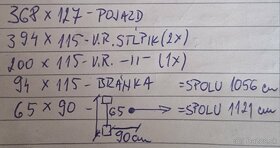 368 × 127 - POJAZD
394 × 115 - V.R. STĹPIK (2x)
200 × 115 - V.R. -11- (1x)
94 × 115 - BRÁNKA = SPOLU 1056 cm
65 × 90 - 65 = SPOLU 1121 cm
90cm